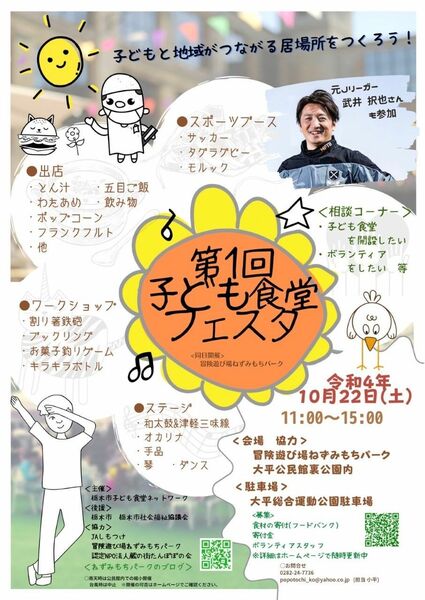 子どもと地域がつながる居場所をつくろう！
元Jリーガー
武井 択也さん
も参加
●スポーツブース
・サッカー
・タグラグビー
・モルック
●出店
・とん汁 ・五目ご飯
・わたあめ ・飲み物
・ポップコーン
・フランクフルト
・他
＜相談コーナー＞
・子ども食堂
を開設したい
・ボランティア
をしたい 等
第1回
子ども食堂
フェスタ
＜同日開催＞
冒険遊び場ねずみもちパーク
●ワークショップ
・割り箸鉄砲
・ブックリング
・お菓子釣りゲーム
・キラキラボトル
令和4年
10月22日(土)
11:00～15:00
●ステージ
・和太鼓&津軽三味線
・オカリナ
・手品
・琴 ・ダンス
＜会場 協力＞
冒険遊び場ねずみもちパーク
大平公民館裏公園内
＜駐車場＞
大平総合運動公園駐車場
＜主催＞
栃木市子ども食堂ネットワーク
＜後援＞
栃木市 栃木市社会福祉協議会
＜協力＞
JAしもつけ
冒険遊び場ねずみもちパーク
認定NPO法人蔵の街たんぽぽの会
＜ねずみもちパークのブログ＞
＜募集＞
食材の寄付(フードバンク)
寄付金
ボランティアスタッフ
※詳細はホームページで随時更新中
○お問合せ
0282-24-7736
papotochi_ko@yahoo.co.jp (担当 小平)
○雨天時は公民館内での縮小開催
台風時は中止 ※開催の可否はホームページでご確認ください。